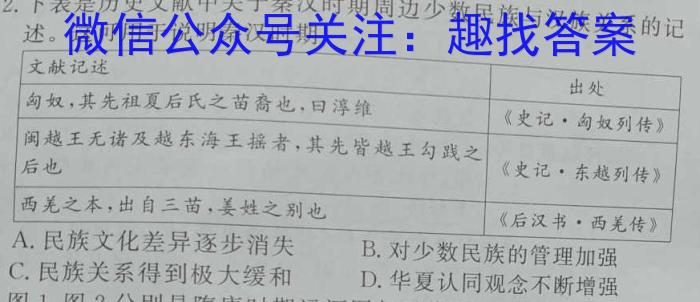 2.下表是历史文献中关于秦汉时期周边少数民族与汉族关系的记
述。
微信公众号关注：趣找答案
文献记述 出处
匈奴,其先祖夏后氏之苗裔也,曰淳维 《史记·匈奴列传》
闽越王无诸及越东海王摇者,其先皆越王勾践之
后也 《史记·东越列传》
西羌之本,出自三苗,姜姓之别也 《后汉书·西羌传》
A. 民族文化差异逐步消失 B. 对少数民族的管理加强
C. 民族关系得到极大缓和 D. 华夏认同观念不断增强